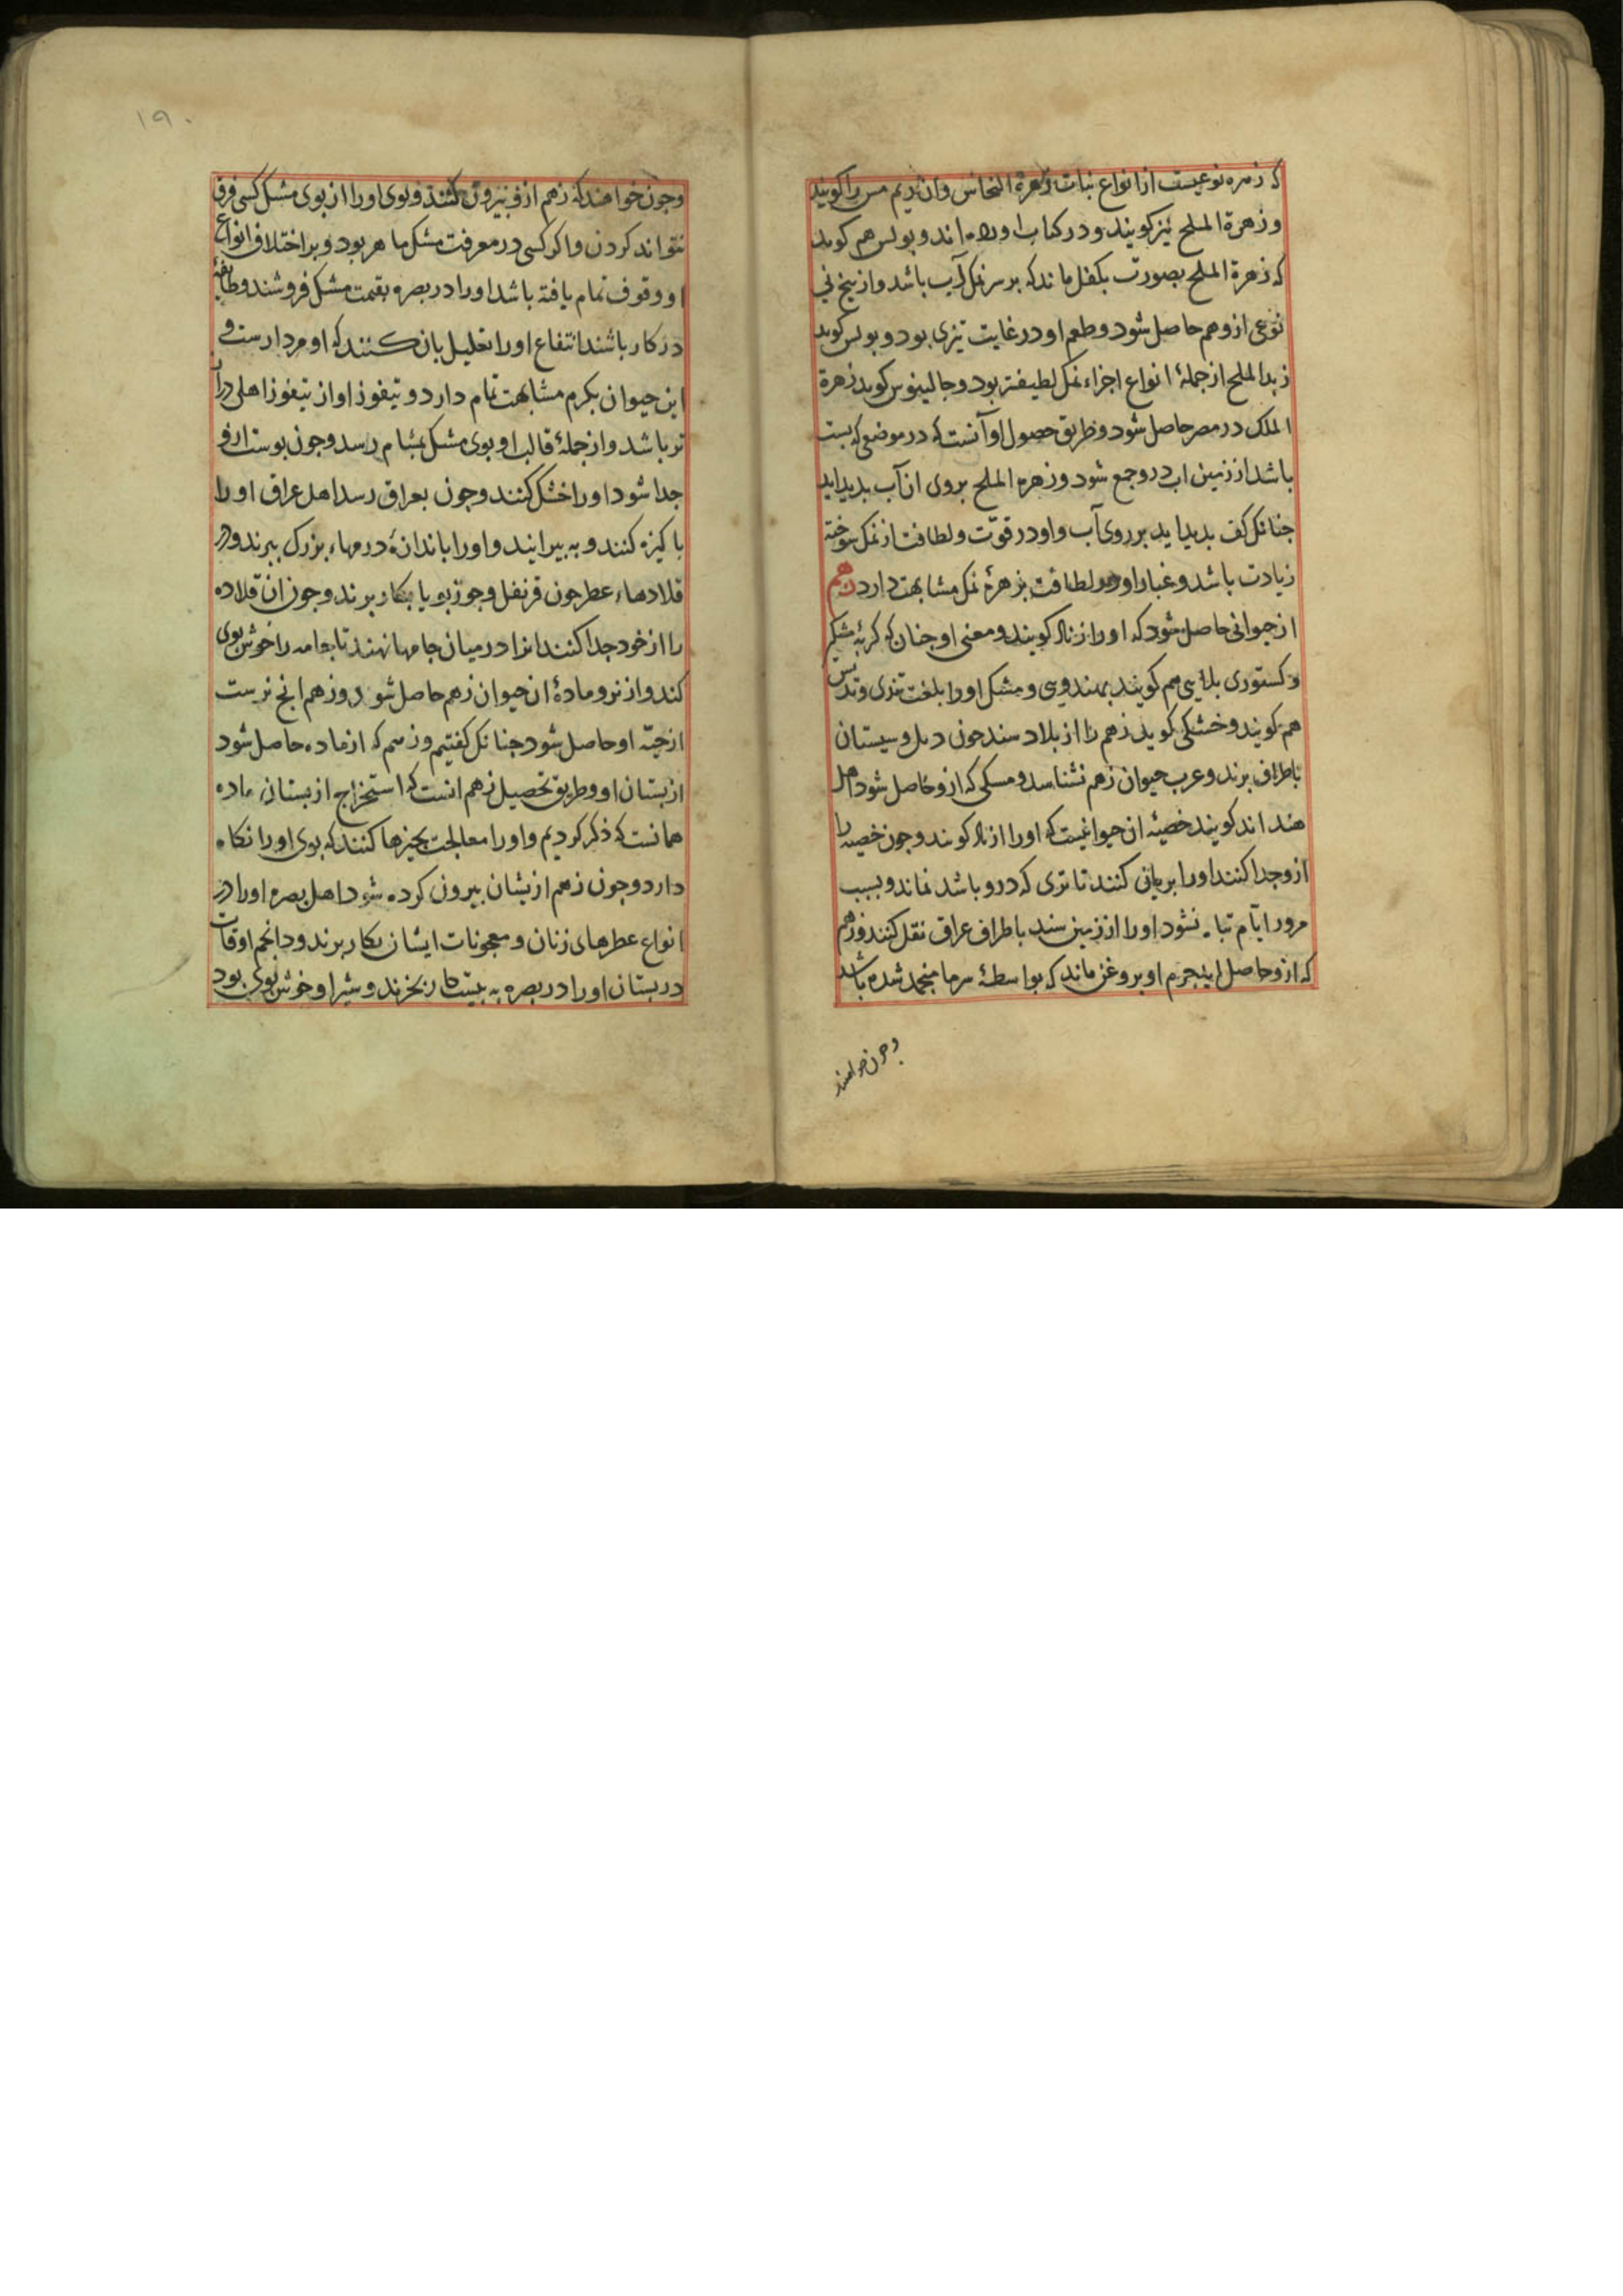 که زهره نوعیست از انواع نبات زهرة النحاس وان ریم مس را کویند
و زهرة الملح نیز کویند و در کتاب اورده اند و بولس هم کوید
که زهرة الملح بصورت بکفل ماند که بر سر نمک آب باشد و از یخ نی
نوعی ازو هم حاصل شود و طعم او در غایت تیزی بود و بولس کوید
زبد الملح از جملهٔ انواع اجزاء نمک لطیفتر بود و جالینوس کوید زهرة
الملک در مصر حاصل شود و طریق حصول او آنست که در موضعی که بست
باشد از زمین اب درو جمع شود و زهره الملح بروی ان آب بدید اید
جنانک کف بدید اید بر روی آب و او در قوّت و لطافت از نمک سوخته
زیادت باشد و غبار او در لطافت بزهرهٔ نمک مشابهت دارد زهم
از حیوانی حاصل شود که او را زناد کویند و معنی او جنان که کربهٔ مشکین
و کستوری بلایی هم کویند بهندویی و مشک او را بلغت
هم کویند و خشکی کوید زهم را از بلاد سند جون دبل و سیستان
باطراف برند و عرب حیوان زهم نشناسد و مسکی که ازو حاصل شود اهل
هند اند کویند خصیهٔ ان حیوانیست که او را زناد کویند و جون خصیه را
ازو جدا کنند او را بریانی کنند تا تری که درو باشد نماند و بسبب
مرور ایّام تباه نشود او را از زمین سند باطراف عراق نقل کنند و زهم
که ازو حاصل اید جرم او بروغن ماند که بواسطهٔ سرما منجمد شده باشد
وجون خواهند
۱۹۰
وجون خواهند که زهم ازو بیرون کنند و بوی او را از بوی مشک کسی فرق
نتواند کردن و اکر کسی در معرفت مشک ماهر بود و بر اختلاف انواع
او وقوف تمام یافته باشد او را در بصره بقیمت مشک فروشند و طایفهٔ
در کار باشند انتفاع او را تعلیل بان کنند که او مردارست و
این حیوان بکرم مشابهت تمام دارد و تیفوز او از تیفوز اهلی دراز
تر باشد و از جملهٔ قالب او بوی مشک بمشام رسد و جون بوست ازو
جدا شود او را خشک کنند و جون بعراق رسد اهل عراق او را
باکیزه کنند و به بیرایند و او را باندازهٔ درمهاء بزرک ببرند و در
قلادهاء عطر جون قرنفل و جوز بویا بکار برند و جون ان قلاده
را از خود جدا کنند انرا در میان جامها نهند تا جامه را خوش بوی
کند و از نر و مادهٔ ان حیوان زهم حاصل شود و زهم انج نرست
از جثهٔ او حاصل شود جنانک کفتیم و زهم که از ماده حاصل شود
از بستان او و طریق تحصیل زهم انست که استخراج از بستان ماده
همانست که ذکر کردیم و او را معالجت بجیزها کنند که بوی او را نکاه
دارد و جون زهم از بستان بیرون کرده شود اهل بصره او را در
انواع عطرهای زنان و معجونات ایشان بکار برند و دانجم اوقات
در بستان او را در بصره به بیست دینار بخرند و شیر او خوش بوی بود